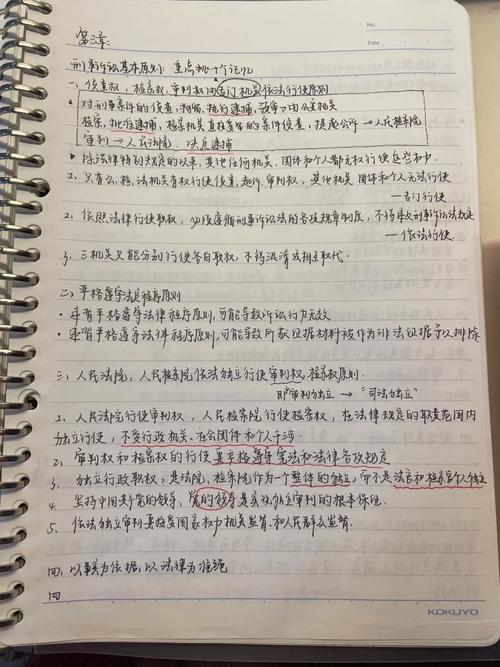 No.
Date
第三章:
刑事诉讼基本原则: 重点抓十个记忆
一、侦查权、检察权、审判权由专门机关依法行使原则
对刑事案件的侦查、拘留、执行逮捕、预审 → 由公安机关
检察、批准逮捕、检察机关直接受理的案件侦查、提起公诉 → 人民检察院
审判 → 人民法院、决定逮捕
除法律特别规定的以外, 其他任何机关、团体和个人都无权行使这些权力
1、只有公、检、法机关有权行使侦查、起诉、审判权, 其他机关 团体和个人无法行使
— 专门行使
2、依照法律行使职权, 必须遵循刑事诉讼法的各项规章制度, 不得违反刑事诉讼法规定
— 依法行使
3、三机关只能分别行使各自职权, 不得混淆或相互取代.
二、严格遵守法律程序原则
· 违背严格遵守法律程序原则, 可能导致诉讼行为无效
· 违背严格遵守法律程序原则, 可能导致所获证据材料被作为非法证据予以排除
三、人民法院、人民检察院依法独立行使审判权、检察权原则:
即审判独立 → “司法独立”
1、人民法院行使审判权, 人民检察院行使检察权, 在法律规定的职责范围内
独立行使, 不受行政机关、社会团体和个人干涉
2、审判权和检察权的行使要严格遵守宪法和法律各项规定
3、独立行政职权, 是法院、检察院作为一个整体的独立, 而不是法官和检察官个人独立
4、坚持中国共产党的领导, 党的领导是实现独立审判的根本保证.
5、依法独立审判要接受国家权力机关监督和人民群众监督.
四、以事实为依据, 以法律为准绳
四
KOKUYO